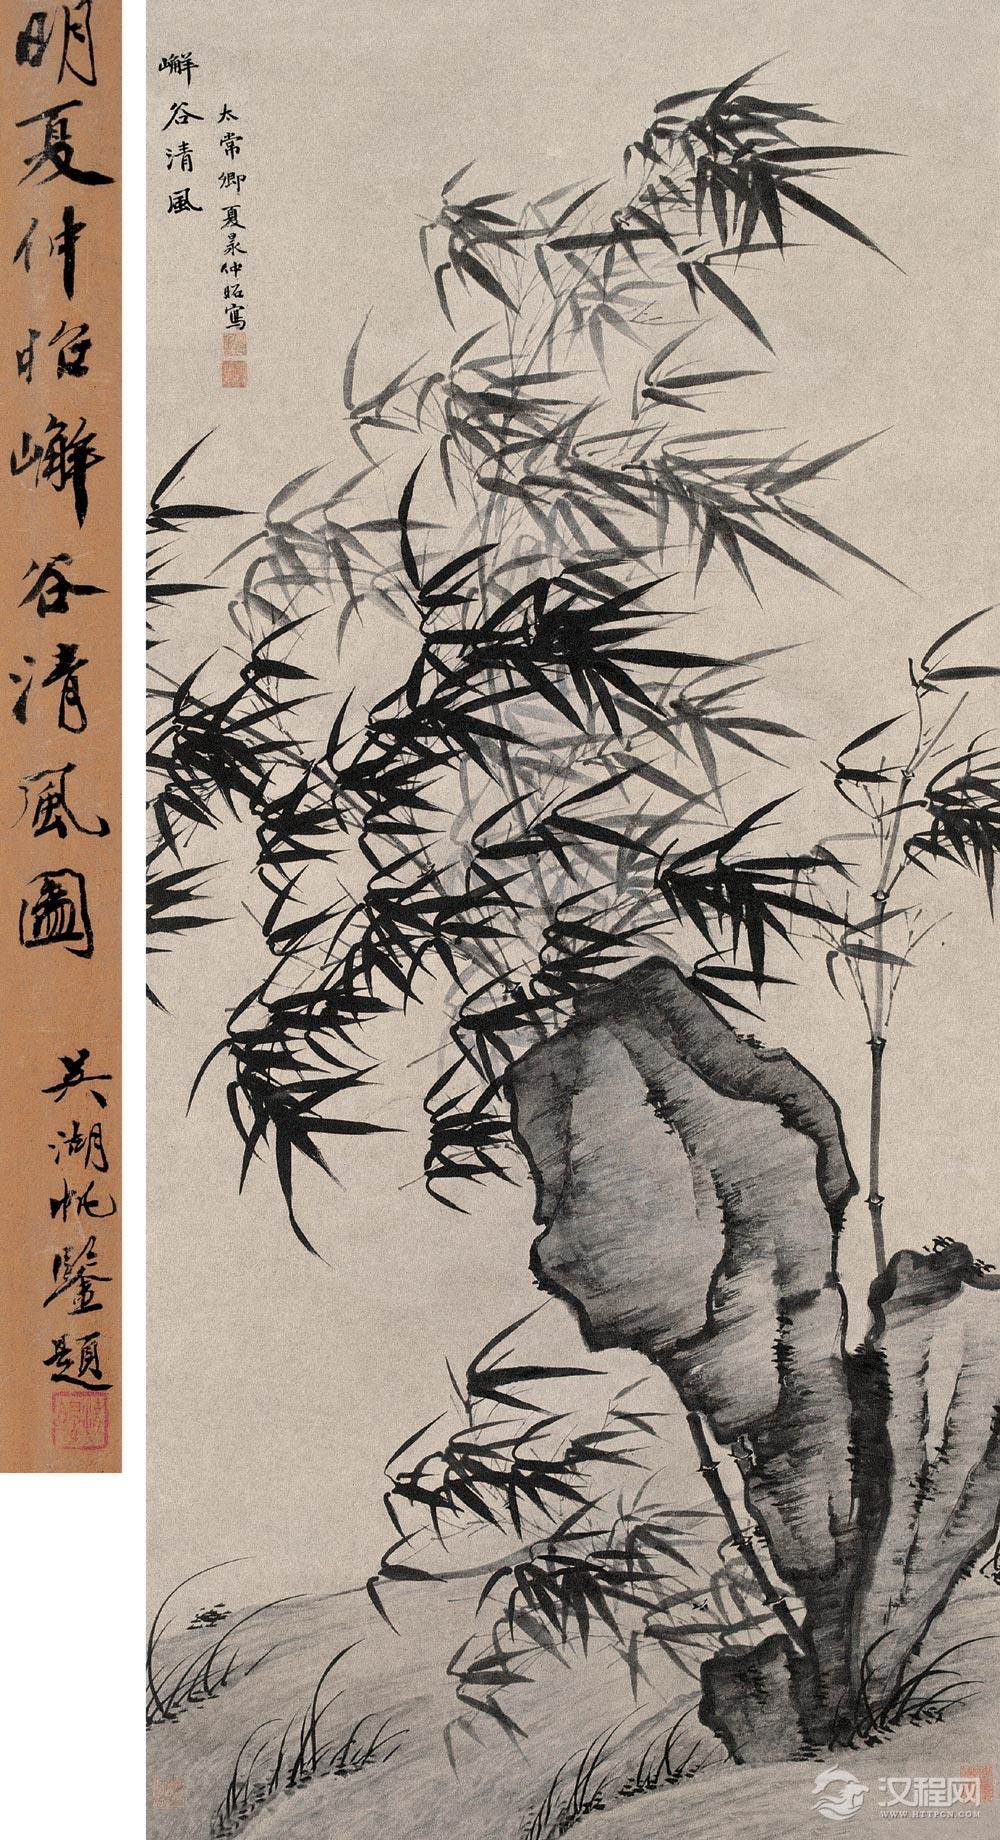 明夏仲昭嶰谷清風圖
吳湖帆鑒題
嶰谷清風
太常卿夏㫤仲昭寫
汉程网
WWW.HTTPCN.COM